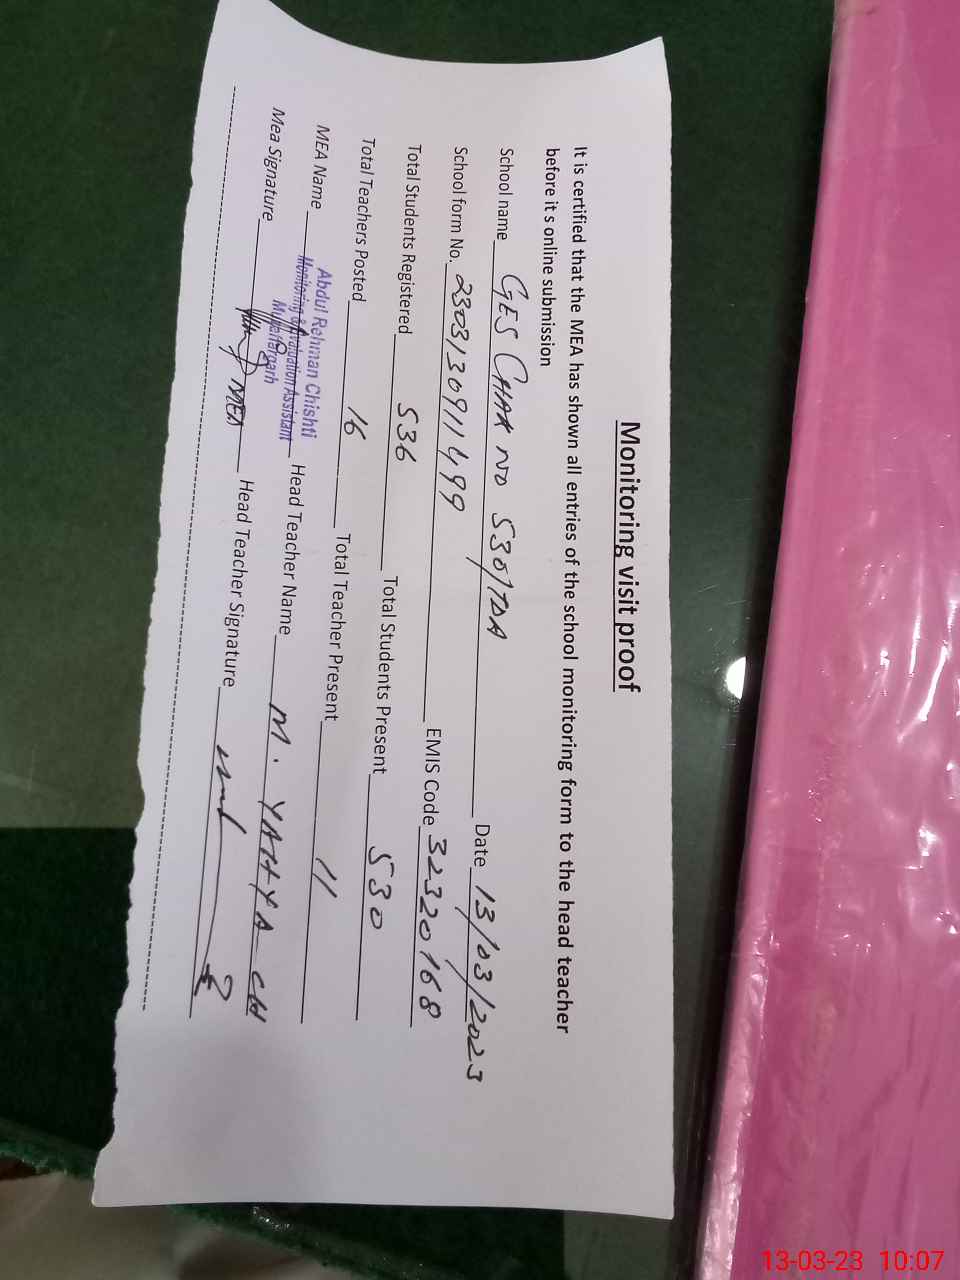 Monitoring visit proof
It is certified that the MEA has shown all entries of the school monitoring form to the head teacher
before it s online submission
School name GES CHAK NO 530/TDA Date 13/03/2023
School form No. 2303130911499 EMIS Code 32320168
Total Students Registered 536 Total Students Present 530
Total Teachers Posted 16 Total Teacher Present 11
MEA Name Abdul Rehman Chishti Head Teacher Name M. YAHYA CH
Monitoring & Evaluation Assistant
Muzaffargarh
Mea Signature MEA Head Teacher Signature
13-03-23 10:07